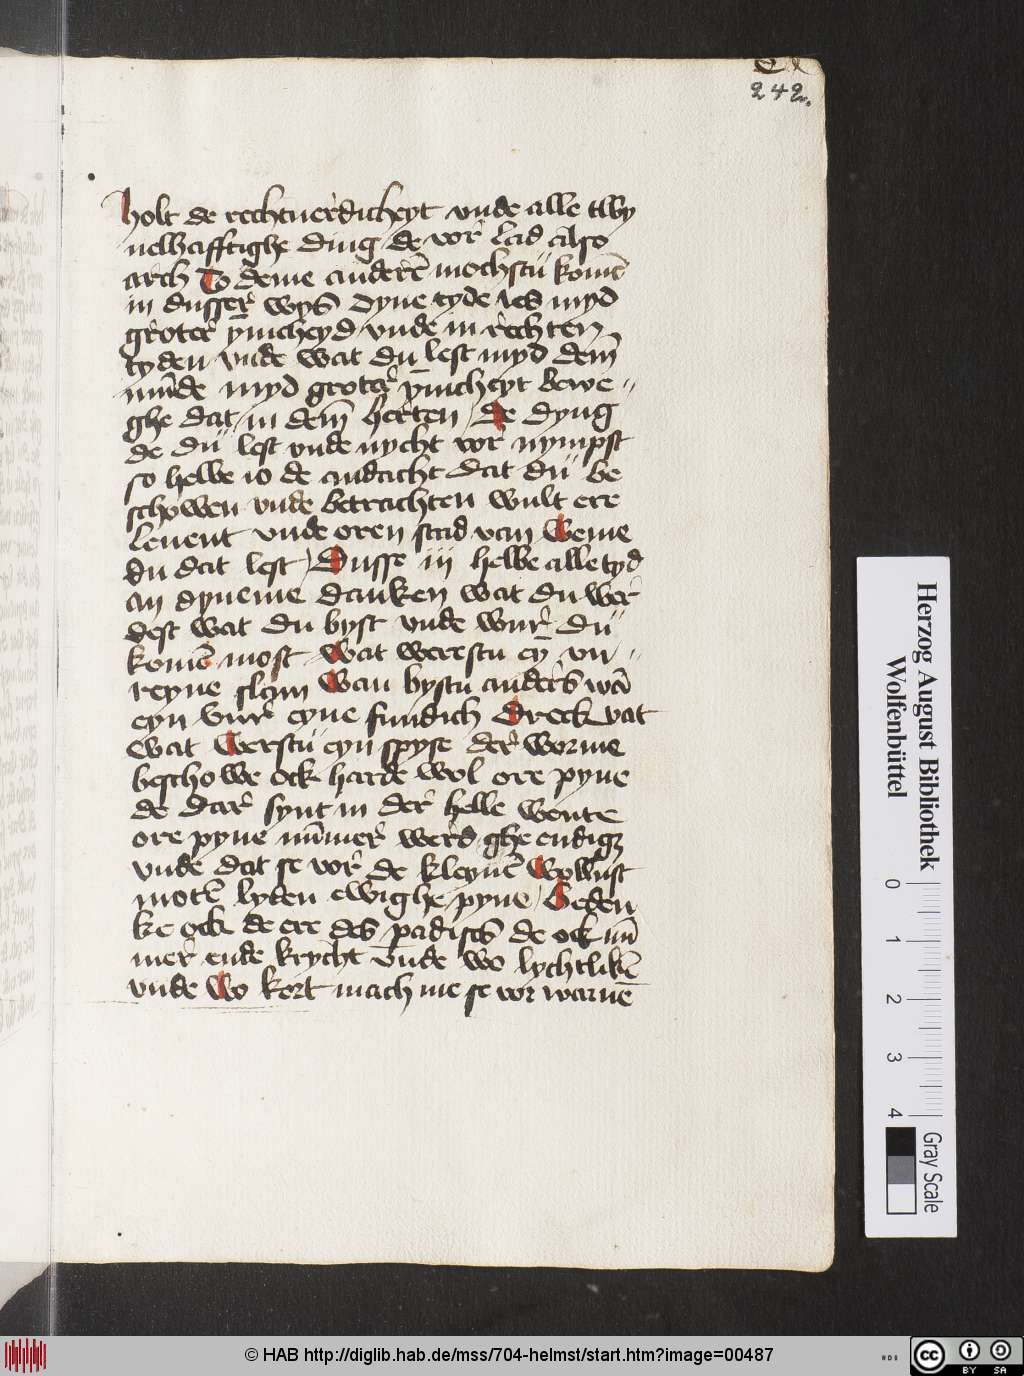 242.
holt de rechtuerdicheyt vnde alle twy
uelhafftighe ding de vor lad Also
arch To deme anderē mochstu komē
in dusser wys Dyne tyde les myd
groter ynicheyd vnde in rechten
tyden vnde wat du lest myd dem̄
mūde myd groter ynicheyt bewe„
ghe dat in dem̄ herten De dyng
de du lest vnde nycht vor nympst
so hebbe io de andacht dat du be
schowen vnde betrachten wult ere
leuent vnde oren stad van weme
du dat lest Dusse iij hebbe alle tyd
an dyneme danken wat du wer
dest wat du byst vnde wur du
komē most Wat werestu eȳ vn„
reyne slam Wan bystu anders wā
eyn vur eyne Dreck vat
Wat werstu eyn spyse der worme
beschowe ock harde wol ore pyne
de dar synt in der helle wente
ore pyne nūmer werd ghe endigz
vnde dat se vor de kleynē wollust
motē lyden ewighe pyne Beden
ke ock de ere des padises de ock nū
mer ende krycht vnde wo lychtlikē
vnde wo kort mach me se vor waruē
Herzog August Bibliothek
Wolfenbüttel
0 1 2 3 4
Gray Scale
© HAB http://diglib.hab.de/mss/704-helmst/start.htm?image=00487
HAB
cc BY SA